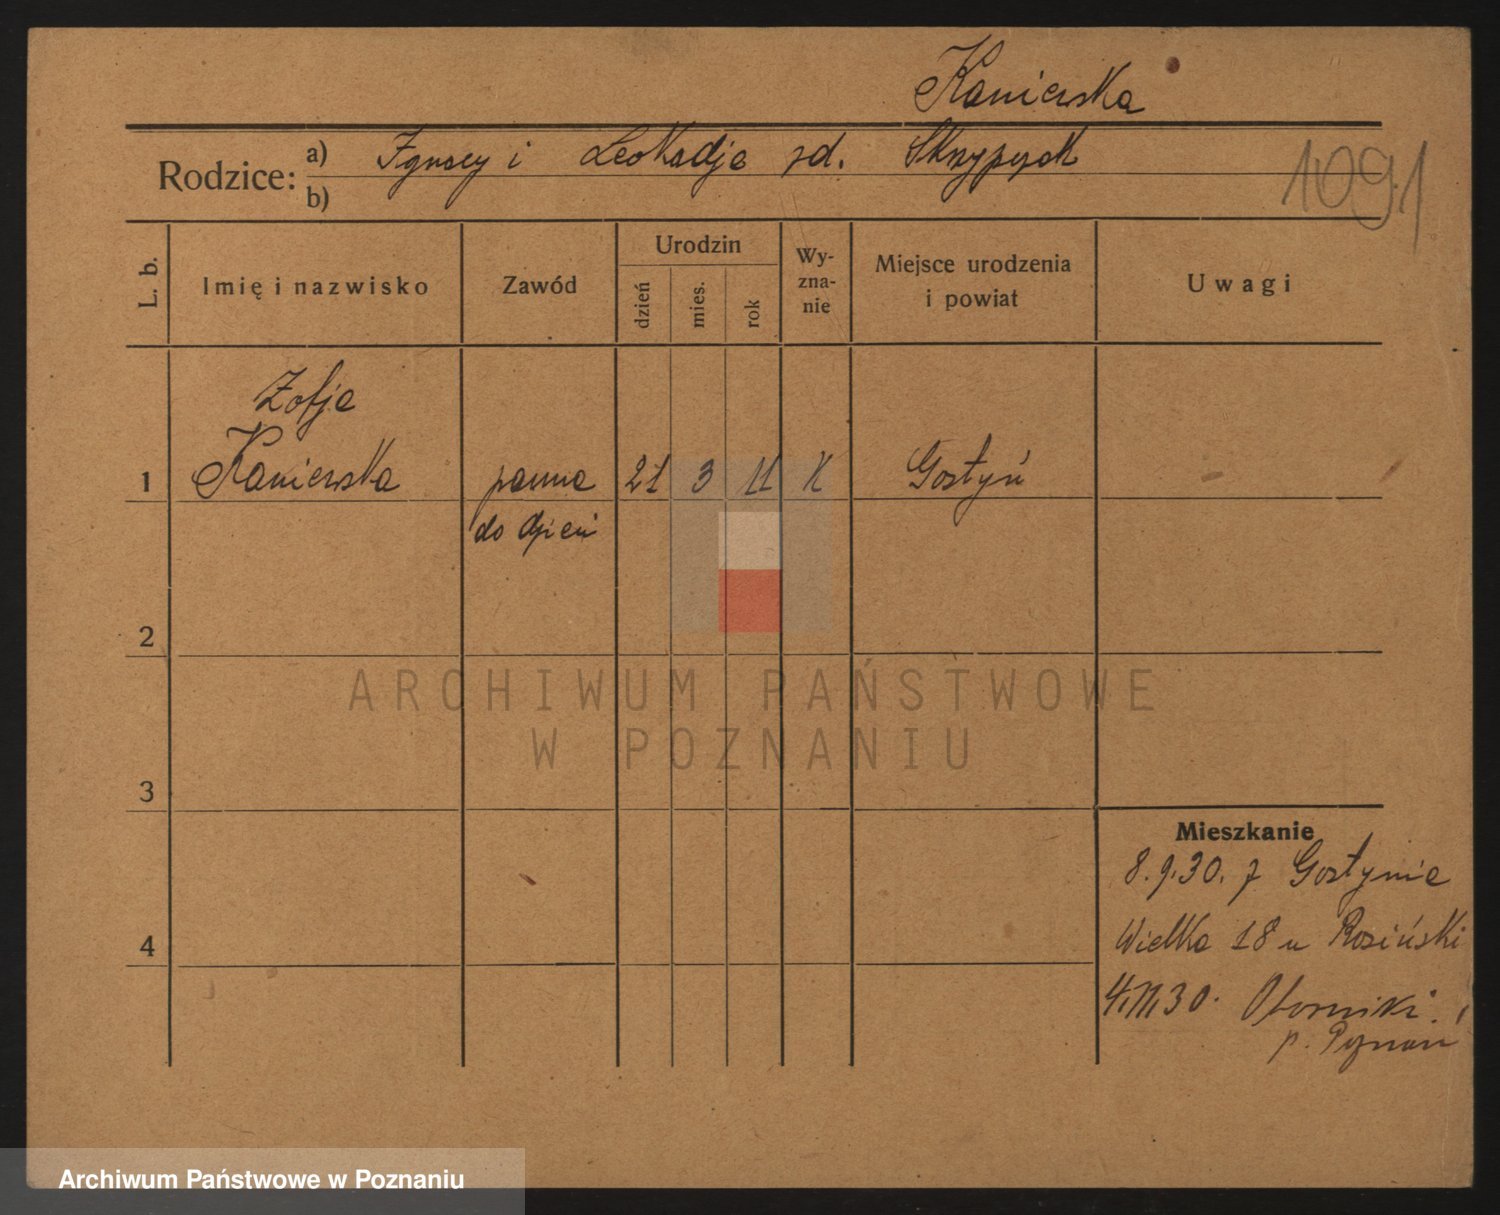 Kaniewska
Rodzice: a) Ignacy i Leokadja zd. Skrzypczak
b)
1091
L. b.
Imię i nazwisko
Zawód
Urodzin
dzień
mies.
rok
Wy-
zna-
nie
Miejsce urodzenia
i powiat
Uwagi
Zofja
1 Kaniewska panna 21 3 11 K Gostyń
do dzieci
2
ARCHIWUM PAŃSTWOWE
W POZNANIU
3
Mieszkanie
8.9.30. z Gostynia
4 Wielka 18 u Rosiński
4.11.30. Oborniki.
p. Poznań
Archiwum Państwowe w Poznaniu